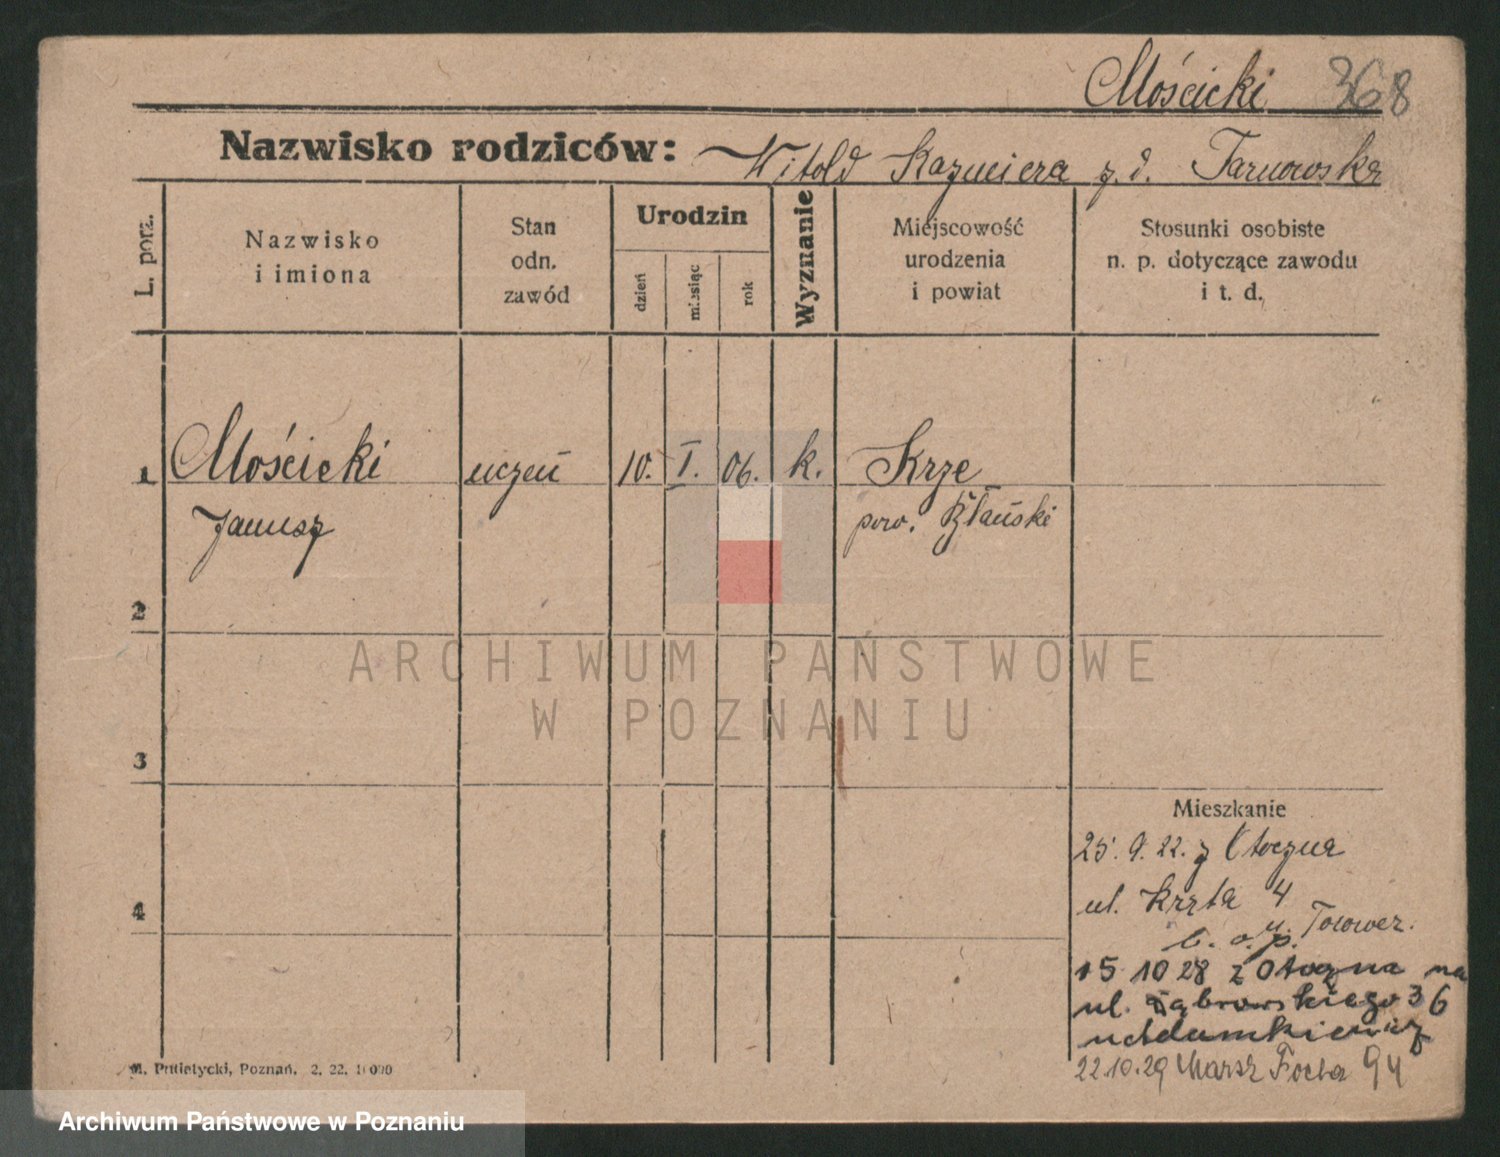 Mościcki 368
Nazwisko rodziców: Witold Kazmiera z. d. Tarnowska
L. porz.
Nazwisko
i imiona
Stan
odn.
zawód
Urodzin
dzień
miesiąc
rok
Wyznanie
Miejscowość
urodzenia
i powiat
Stosunki osobiste
n. p. dotyczące zawodu
i t. d.
1 Mościcki uczeń 10. I. 06. k. Krze
Janusz pow. Błański
2
ARCHIWUM PAŃSTWOWE
W POZNANIU
3
Mieszkanie
25. 9. 22. z Otoczna
ul. Kręta 4
4
u. Totower.
b. o. p.
15 10 28 z Otoczna na
ul. Dąbrowskiego 36
u Adamkiewicz
22.10.29 Marsz Focha 94
M. Putiatycki, Poznań. 2. 22. 10000
Archiwum Państwowe w Poznaniu